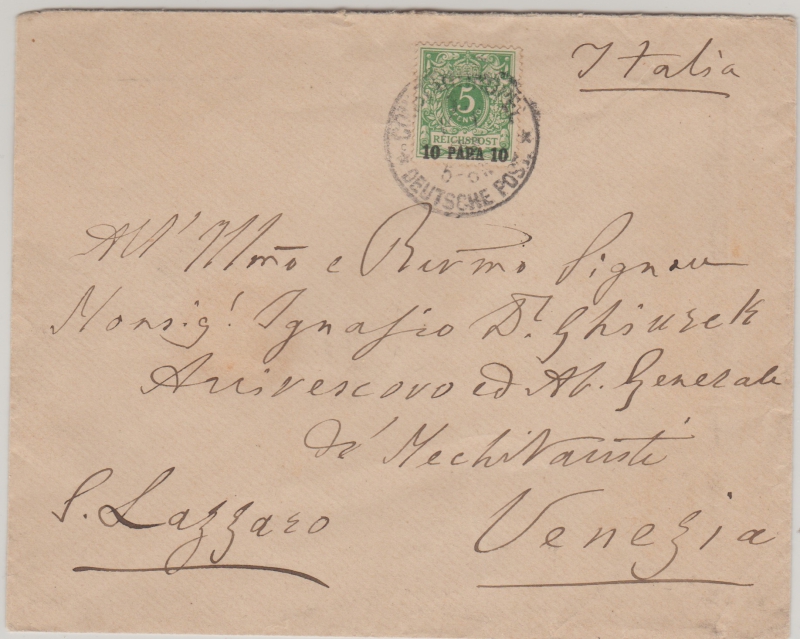 Italia
5
REICHSPOST
10 PARA 10
DEUTSCHE POST
All' Illmo e Revmo Signore
Monsig! Ignazio Dr. Ghiurek
Arcivescovo ed Ab. Generale
de' Mechitaristi
S. Lazzaro
Venezia